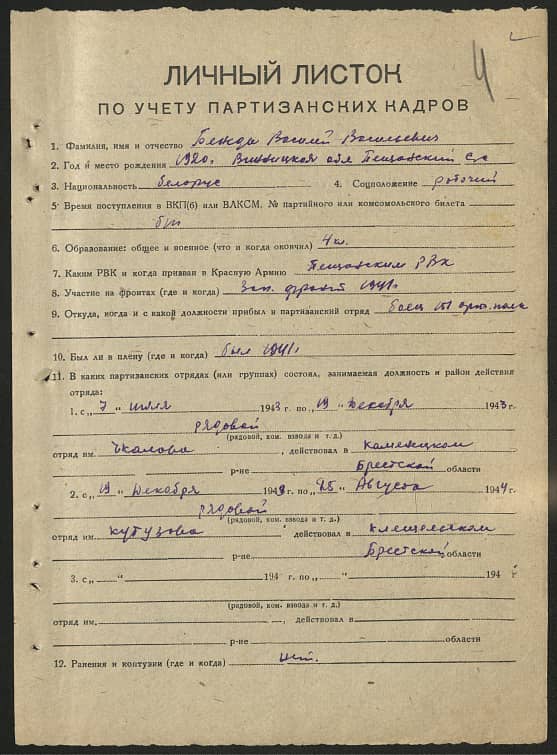 4
ЛИЧНЫЙ ЛИСТОК
ПО УЧЕТУ ПАРТИЗАНСКИХ КАДРОВ
1. Фамилия, имя и отчество Василий Васильевич
2. Год и место рождения 1920г. Винницкая обл Пещанский
3. Национальность белорус 4. Соцположение рабочий
5 Время поступления в ВКП(б) или ВЛКСМ, № партийного или комсомольского билета
б/п
6. Образование: общее и военное (что и когда окончил) 4 кл.
7. Каким РВК и когда призван в Красную Армию Пещанским РВК
8. Участие на фронтах (где и когда) Зап. фронт 1941г.
9. Откуда, когда и с какой должности прибыл в партизанский отряд боец арт. полк
10. Был ли в плену (где и когда) был 1941г.
11. В каких партизанских отрядах (или группах) состоял, занимаемая должность и район действия
отряда:
1. с „ 7 “ июля 1943 г. по „ 19 “ Декабря 1943 г.
рядовой
(рядовой, ком. взвода и т. д.)
отряд им. Чкалова , действовал в Каменецком
р-не Брестской области
2. с „ 19 “ Декабря 1943 г. по „ 25 “ Августа 1944 г.
рядовой
(рядовой, ком. взвода и т. д.)
отряд им. Кутузова действовал в Клещелеском
р-не Брестской области
3. с „ “ 194 г. по „ “ 194 г
(рядовой, ком. взвода и т. д.)
отряд им. , действовал в
р-не области
12. Ранения и контузии (где и когда) нет.